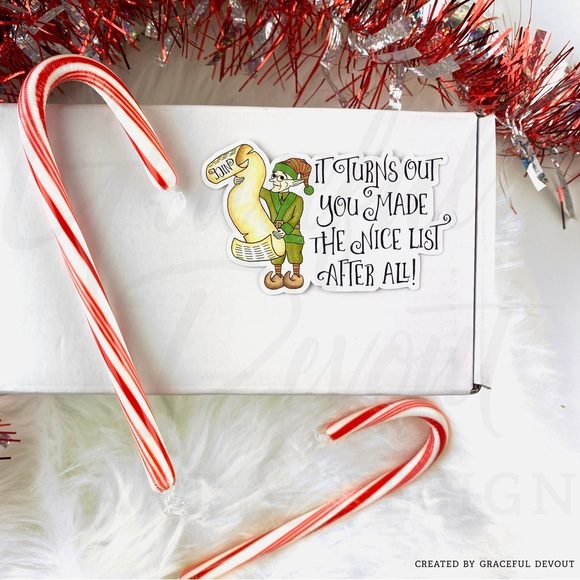 NICE
IT TURNS OUT
YOU MADE
THE NICE LIST
AFTER ALL!
Devout
DESIGN
CREATED BY GRACEFUL DEVOUT